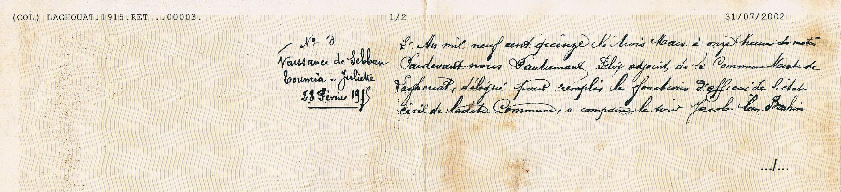 (COL) LAGHOUAT.1915.RET...00003.
1/2
31/07/2002
No 8
Naissance de Sebban
Toumia - Juliette
28 Février 1915
L'An mil neuf cent quinze le trois Mars à onze heures du matin
Pardevant nous Eloi adjoint de la Commune Mixte de
Laghouat, délégué pour remplir les fonctions d'officier de l'état
civil de ladite Commune, a comparu le sieur Jacob
.../...